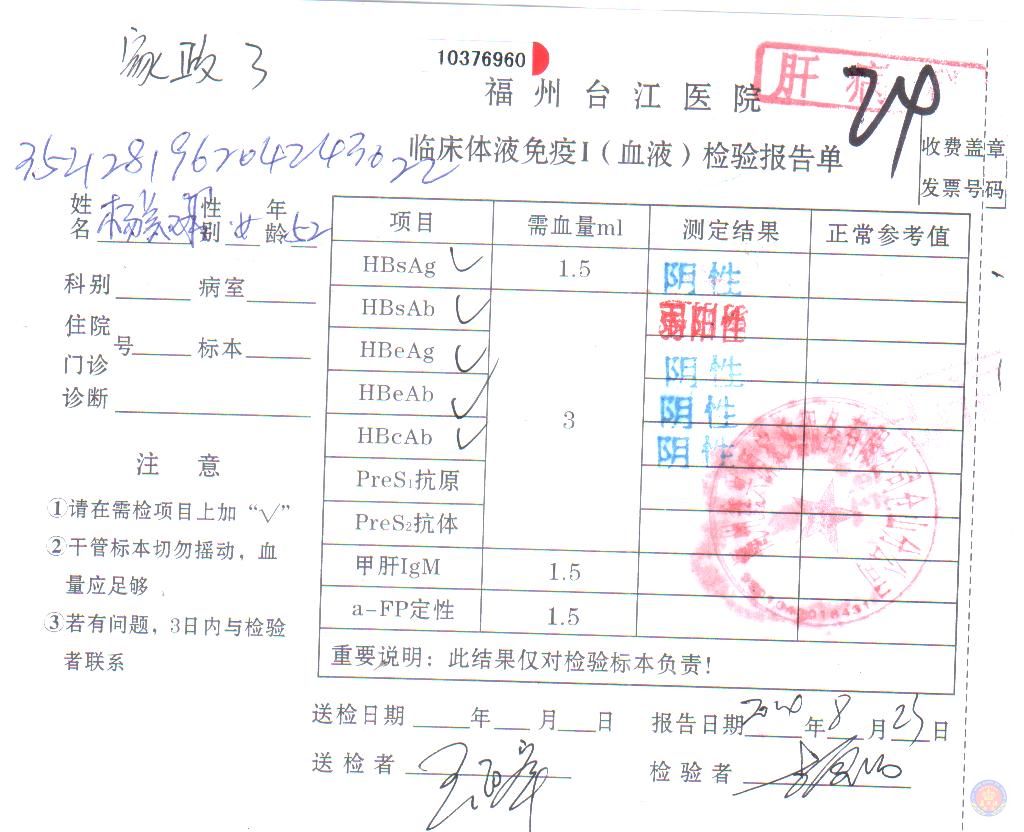 家政3
10376960
肝
24
福州台江医院
临床体液免疫I(血液)检验报告单
收费盖章
发票号码
姓名 性别 女 年龄 52
科别 病室
住院
门诊 号 标本
诊断
注 意
①请在需检项目上加“√”
②干管标本切勿摇动,血
量应足够
③若有问题,3日内与检验
者联系
项目 需血量ml 测定结果 正常参考值
HBsAg √ 1.5 阴性
HBsAb √ 弱阳性
HBeAg √ 阴性
HBeAb √ 3 阴性
HBcAb √ 阴性
PreS₁抗原
PreS₂抗体
甲肝IgM 1.5
a-FP定性 1.5
重要说明:此结果仅对检验标本负责!
送检日期 年 月 日 报告日期 年8月23日
送检者 检验者